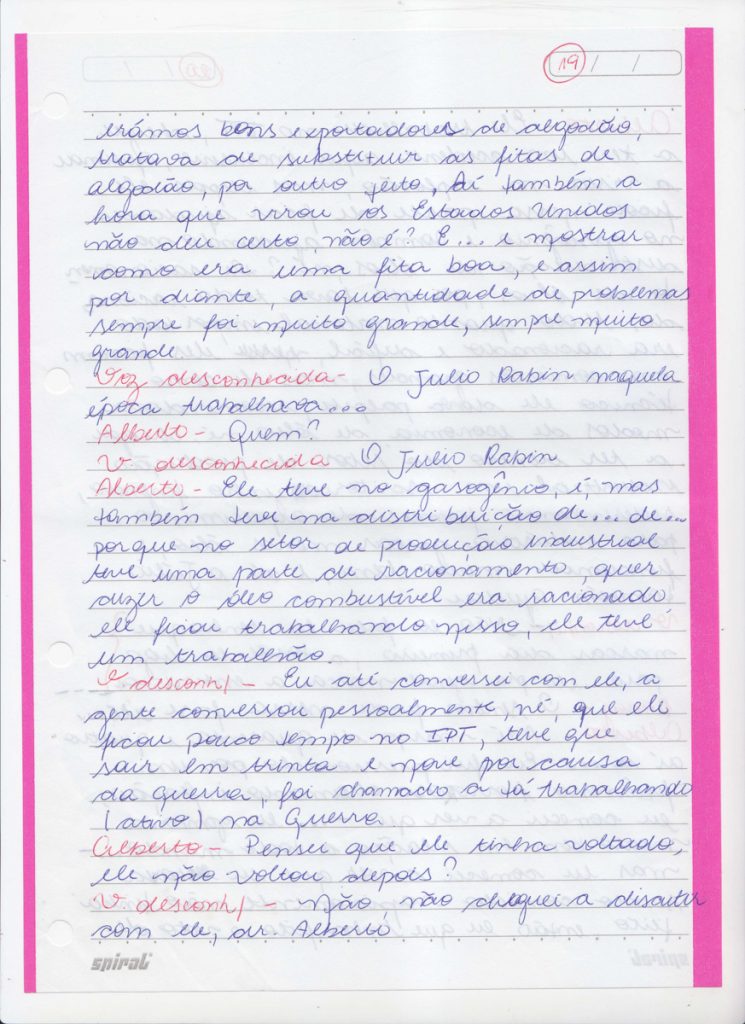 19 / /
erámos bons exportadores de algodão,
tratava de substituir as fitas de
algodão, por outro jeito, Aí também a
hora que virou os Estados Unidos
não deu certo, não é? E... e mostrar
como era uma fita boa, e assim
por diante, a quantidade de problemas
sempre foi muito grande, sempre muito
grande
Voz desconhecida - O Julio Rabin naquela
época trabalhava...
Alberto - Quem?
V. desconhecida O Julio Rabin
Alberto - Ele teve no gasogênio, é, mas
também teve na distribuição de... de...
porque no setor de produção industrial
teve uma parte de racionamento, quer
dizer o óleo combustível era racionado
ele ficou trabalhando nisso, ele teve
um trabalhão.
V desconh/ - Eu até conversei com ele, a
gente conversou pessoalmente, né, que ele
ficou pouco tempo no IPT, teve que
sair em trinta e nove por causa
da Guerra, foi chamado a tá trabalhando
(ativo) na Guerra
Alberto - Pensei que ele tinha voltado,
ele não voltou depois?
V. desconh/ - Não, não cheguei a discutir
com ele, dr. Alberto
spiral